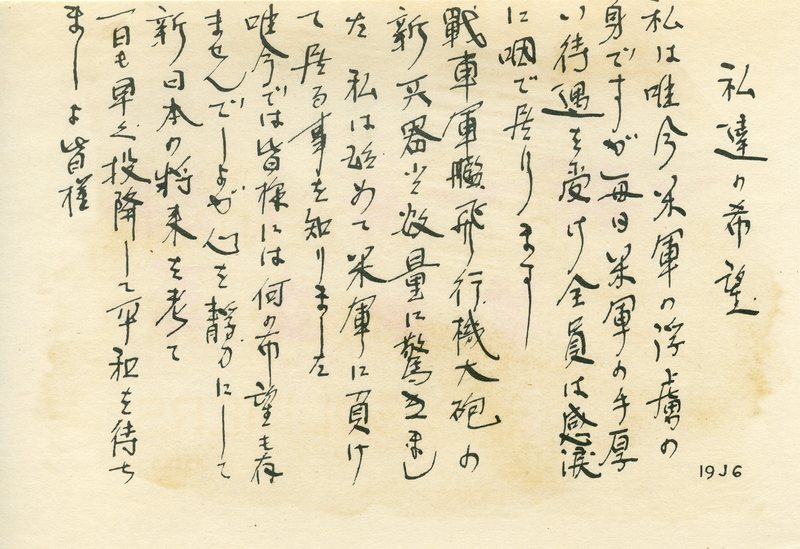 私達の希望
私は唯今米軍の浮虜の
身ですが毎日米軍の手厚
い待遇を受け全員は感涙
に咽で居ります
戦車軍艦飛行機大砲の
新兵器と数量に驚きまし
た 私は始めて米軍に負け
て居る事を知りました
唯今では皆様には何の希望も存
ませんでしよが心を静かにして
新日本の将来を考て
一日も早く投降して平和を待ち
ましよ皆様
19J6